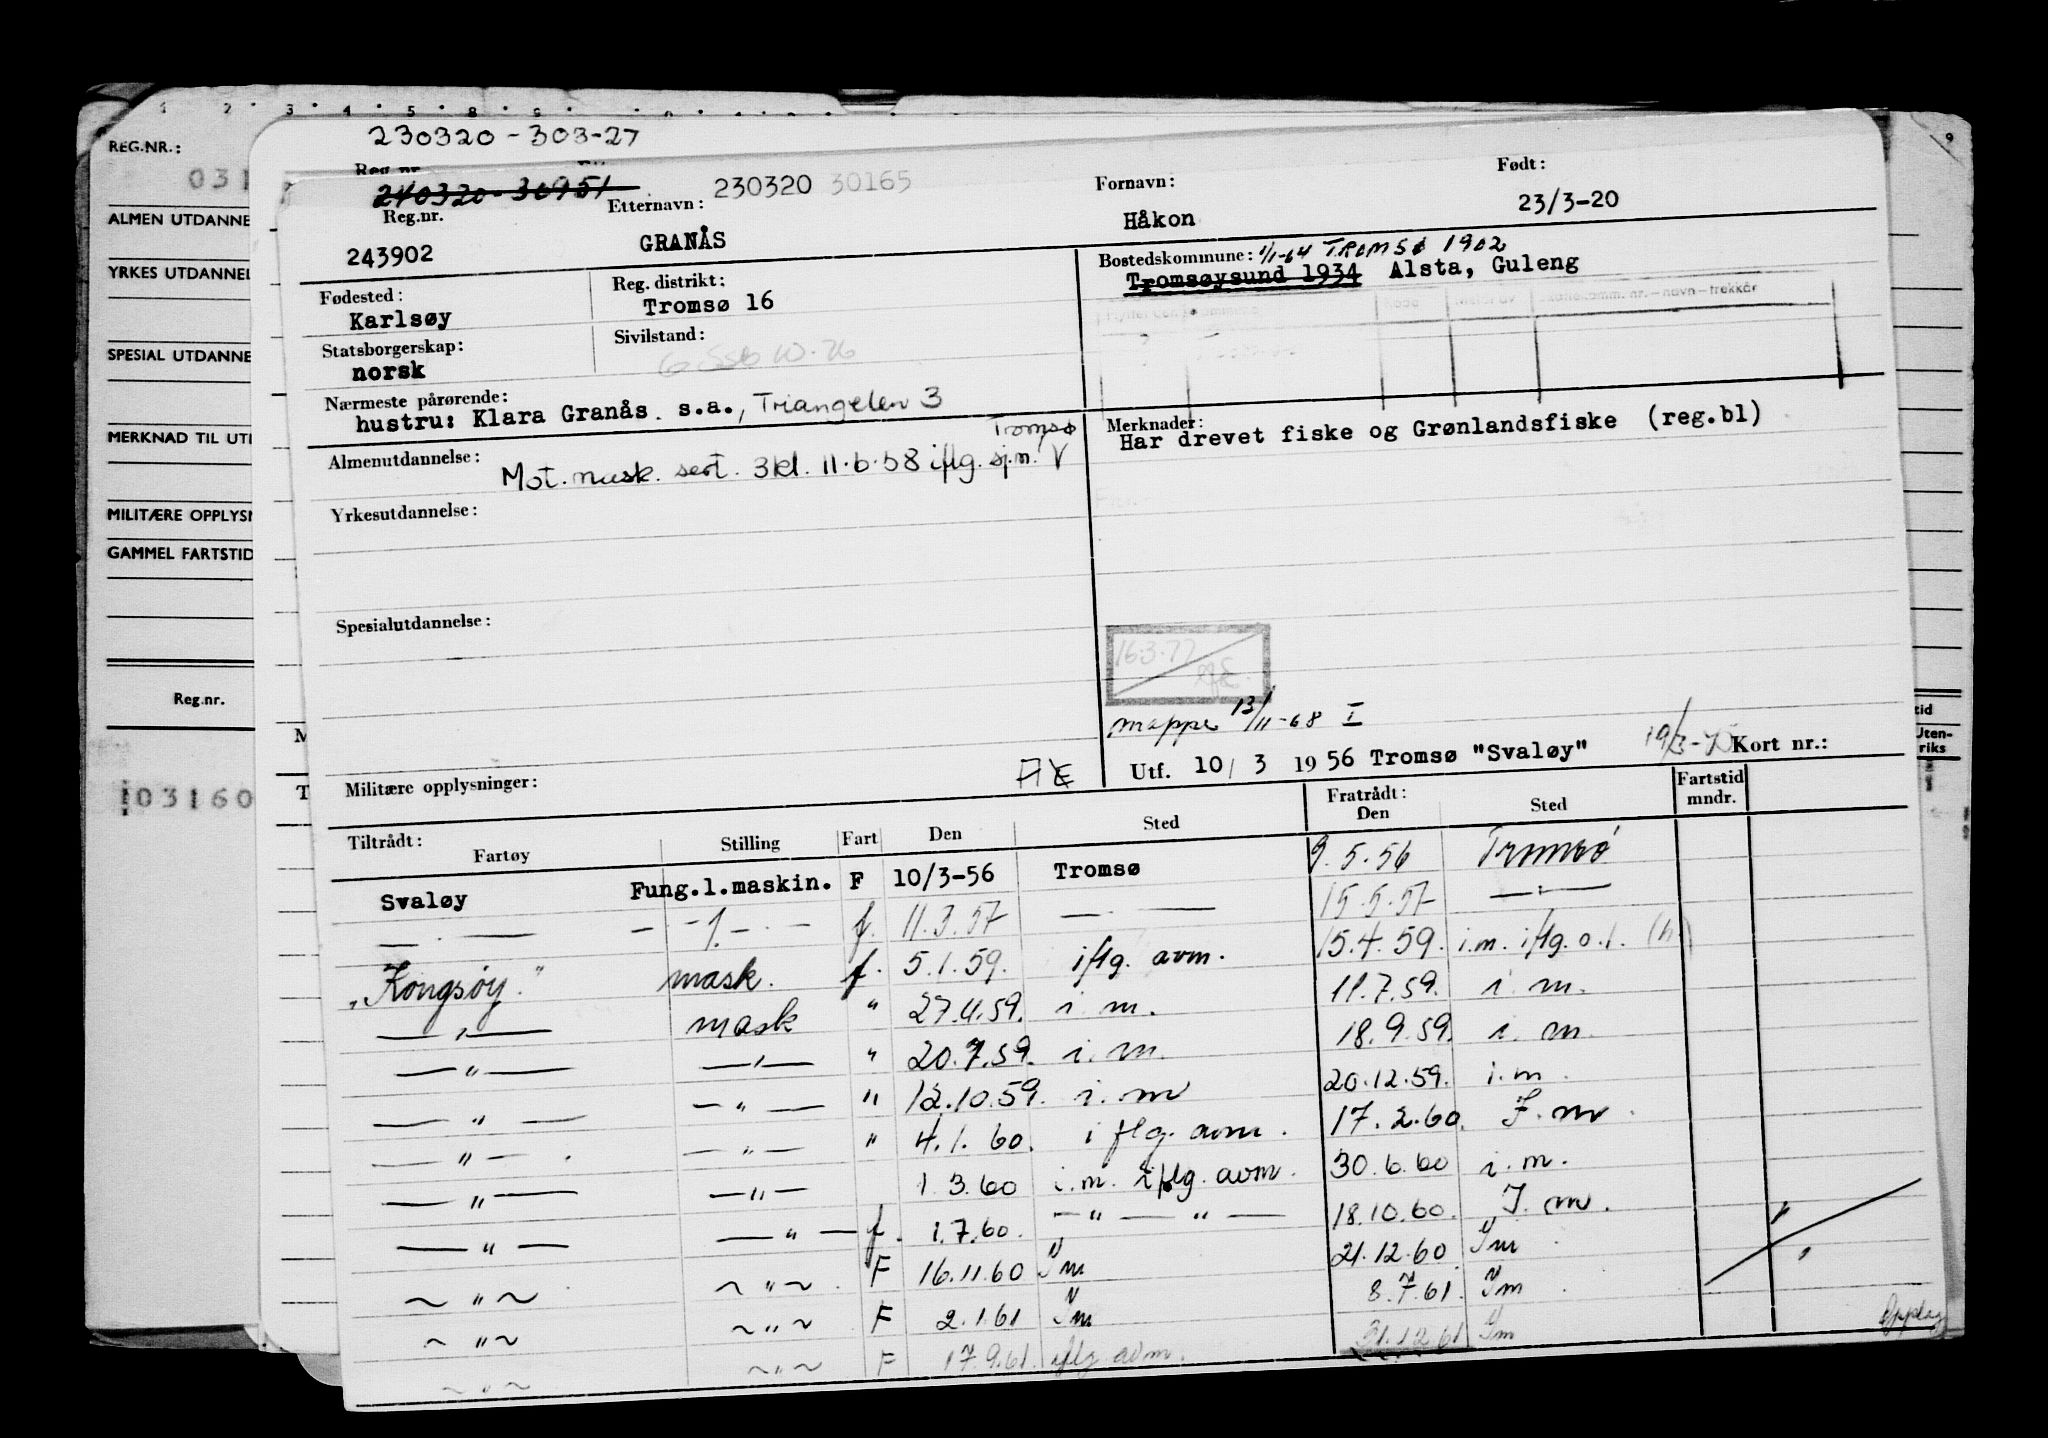 1 2 3 4 5 8 9
REG.NR.:
031
ALMEN UTDANNE
YRKES UTDANNEL
SPESIAL UTDANNE
MERKNAD TIL UT
MILITÆRE OPPLYS
GAMMEL FARTSTID
Reg.nr.
03160
230320-303-27
Reg.nr
240320-36951
230320 30165
Reg.nr. Etternavn: Fornavn: Født:
243902 GRANÅS Håkon 23/3-20
Fødested: Reg. distrikt: Bostedskommune: 1/1-64 TROMSØ 1902
Karlsøy Tromsø 16 Tromsøysund 1934 Alsta, Guleng
Statsborgerskap: Sivilstand:
norsk
Nærmeste pårørende:
hustru: Klara Granås s.a., Triangelen 3
Tromsø
Merknader:
Har drevet fiske og Grønlandsfiske (reg.bl)
Almenutdannelse:
Mot. mask. sert. 3kl. 11.6.58 iflg. sj.m. V
Yrkesutdannelse:
Spesialutdannelse:
16.3.77
mappe 13/11-68 I
Utf. 10/ 3 1956 Tromsø "Svaløy" Kort nr.:
Militære opplysninger:
Tiltrådt: Fratrådt: Fartstid
Fartøy Stilling Fart Den Sted Den Sted mndr.
Svaløy Fung.1.maskin. F 10/3-56 Tromsø 9.5.56 Tromsø
— . — — - 1. - . - f. 11.3.57 — . — 15.5.57 — . —
"Kongsøy." mask. f. 5.1.59. iflg. avm. 15.4.59. i.m. iflg. o.l. (h.)
— " — mask " 27.4.59. i. m. 11.7.59. i. m.
— " — — " — " 20.7.59. i. m. 18.9.59. i. m.
— " — — " — " 12.10.59. i. m 20.12.59. i.m.
— " — — " — " 4.1.60. iflg. avm. 17.2.60. I. m.
— " — — " — 1.3.60 i.m. iflg. avm. 30.6.60 i.m.
— " — — " — f. 1.7.60. — " — " — 18.10.60. I. m.
~ " ~ ~ " ~ F 16.11.60 Im 21.12.60 Im
~ " ~ ~ " ~ F 2.1.61 Im 8.7.61. Im
~ " ~ ~ " ~ F 17.9.61. iflg avm. 21.12.61 Im